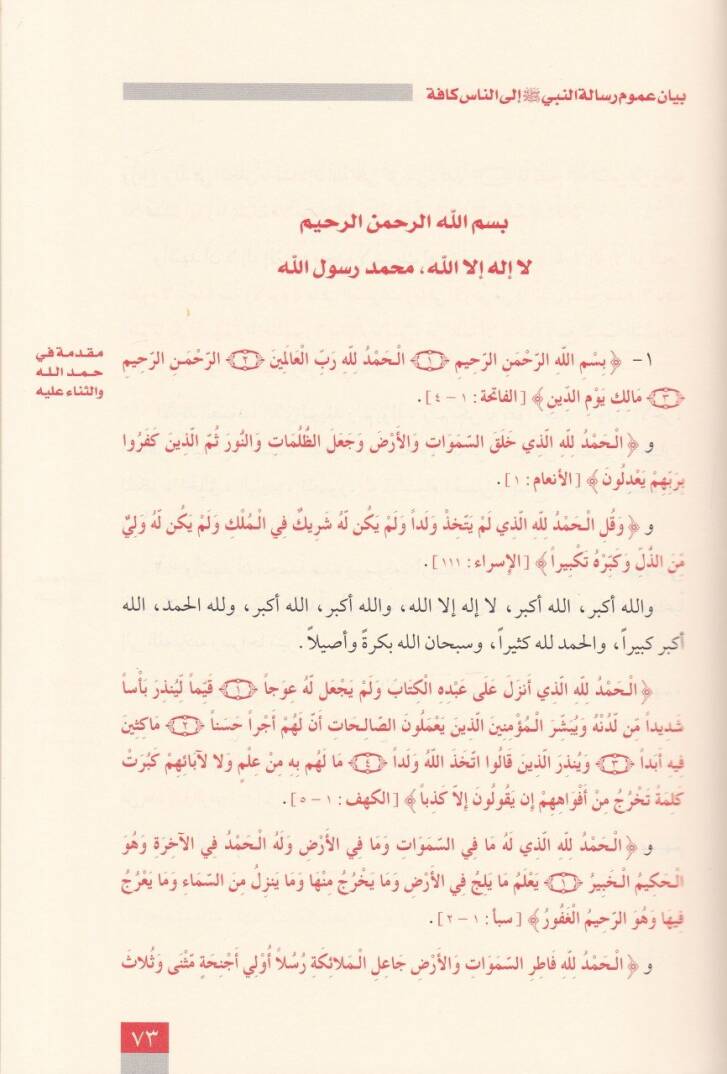 بيان عموم رسالة النبي ﷺ إلى الناس كافة
بسم الله الرحمن الرحيم
لا إله إلا الله، محمد رسول الله
مقدمة في
حمد الله
والثناء عليه
١- ﴿ بِسْمِ اللهِ الرَّحْمَنِ الرَّحِيمِ ﴿١﴾ الْحَمْدُ لِلَّهِ رَبِّ الْعَالَمِينَ ﴿٢﴾ الرَّحْمَنِ الرَّحِيمِ
﴿٣﴾ مَالِكِ يَوْمِ الدِّينِ ﴾ [الفاتحة: ١-٤].
و ﴿ الْحَمْدُ لِلَّهِ الَّذِي خَلَقَ السَّمَوَاتِ وَالأَرْضَ وَجَعَلَ الظُّلُمَاتِ وَالنُّورَ ثُمَّ الَّذِينَ كَفَرُوا
بِرَبِّهِمْ يَعْدِلُونَ ﴾ [الأنعام: ١].
و ﴿ وَقُلِ الْحَمْدُ لِلَّهِ الَّذِي لَمْ يَتَّخِذْ وَلَداً وَلَمْ يَكُن لَّهُ شَرِيكٌ فِي الْمُلْكِ وَلَمْ يَكُن لَّهُ وَلِيٌّ
مِّنَ الذُّلِّ وَكَبِّرْهُ تَكْبِيراً ﴾ [الإسراء: ١١١].
والله أكبر، الله أكبر، لا إله إلا الله، والله أكبر، الله أكبر، ولله الحمد، الله
أكبر كبيراً، والحمد لله كثيراً، وسبحان الله بكرةً وأصيلاً.
﴿ الْحَمْدُ لِلَّهِ الَّذِي أَنزَلَ عَلَى عَبْدِهِ الْكِتَابَ وَلَمْ يَجْعَل لَّهُ عِوَجاً ﴿١﴾ قَيِّماً لِّيُنذِرَ بَأْساً
شَدِيداً مِّن لَّدُنْهُ وَيُبَشِّرَ الْمُؤْمِنِينَ الَّذِينَ يَعْمَلُونَ الصَّالِحَاتِ أَنَّ لَهُمْ أَجْراً حَسَناً ﴿٢﴾ مَاكِثِينَ
فِيهِ أَبَداً ﴿٣﴾ وَيُنذِرَ الَّذِينَ قَالُوا اتَّخَذَ اللَّهُ وَلَداً ﴿٤﴾ مَا لَهُم بِهِ مِنْ عِلْمٍ وَلا لآبَائِهِمْ كَبُرَتْ
كَلِمَةً تَخْرُجُ مِنْ أَفْوَاهِهِمْ إِن يَقُولُونَ إِلاَّ كَذِباً ﴾ [الكهف: ١-٥].
و ﴿ الْحَمْدُ لِلَّهِ الَّذِي لَهُ مَا فِي السَّمَوَاتِ وَمَا فِي الأَرْضِ وَلَهُ الْحَمْدُ فِي الآخِرَةِ وَهُوَ
الْحَكِيمُ الْخَبِيرُ ﴿١﴾ يَعْلَمُ مَا يَلِجُ فِي الأَرْضِ وَمَا يَخْرُجُ مِنْهَا وَمَا يَنزِلُ مِنَ السَّمَاءِ وَمَا يَعْرُجُ
فِيهَا وَهُوَ الرَّحِيمُ الْغَفُورُ ﴾ [سبأ: ١-٢].
و ﴿ الْحَمْدُ لِلَّهِ فَاطِرِ السَّمَوَاتِ وَالأَرْضِ جَاعِلِ الْمَلائِكَةِ رُسُلاً أُوْلِي أَجْنِحَةٍ مَّثْنَى وَثُلاثَ
٧٣